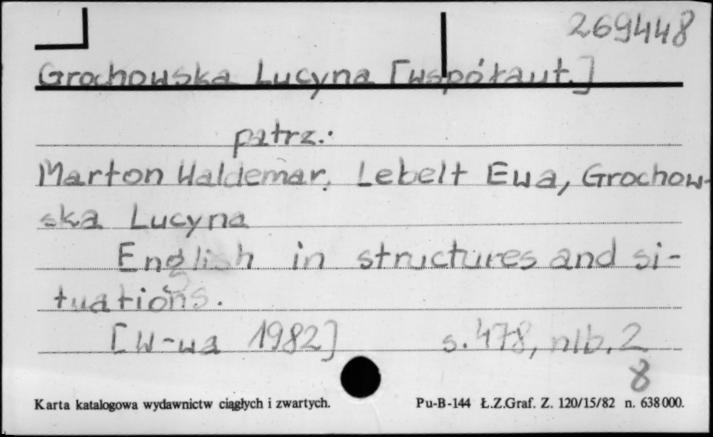 269448
Grochowska Lucyna [współaut.]
patrz:
Marton Waldemar, Lebelt Ewa, Grochow-
ska Lucyna
English in structures and si-
tuations.
[W-wa 1982] s. 478, nlb. 2
8
Karta katalogowa wydawnictw ciągłych i zwartych. Pu-B-144 Ł.Z.Graf. Z. 120/15/82 n. 638000.